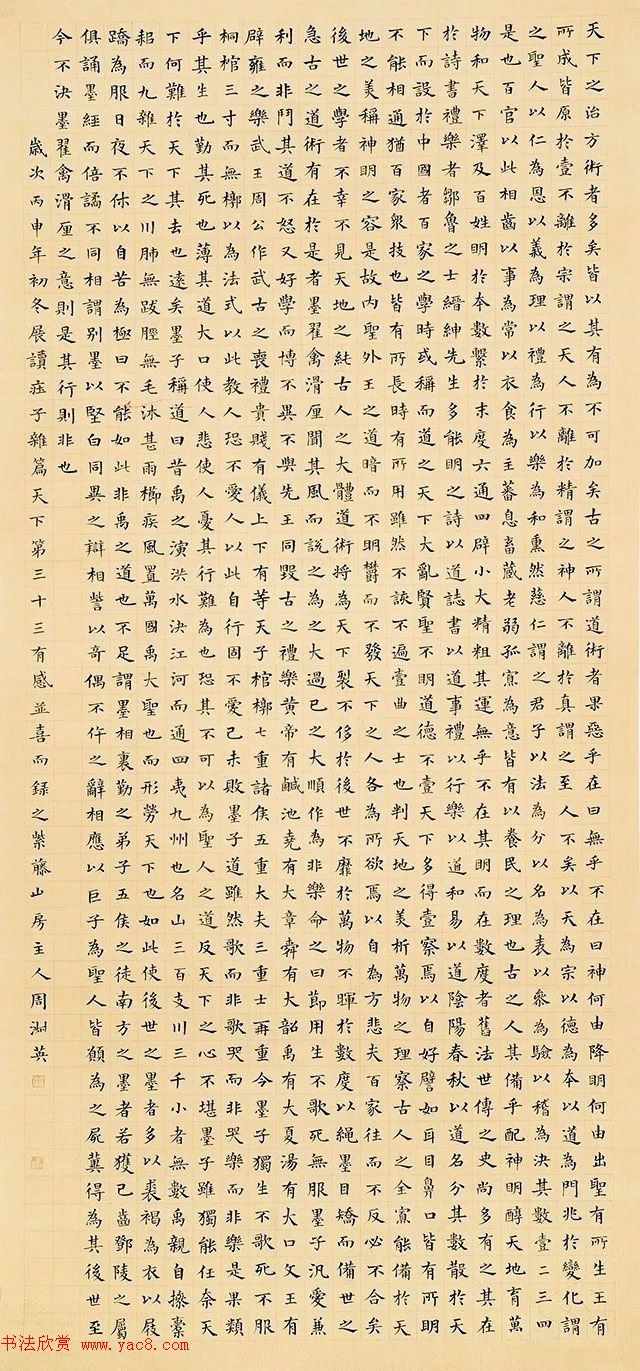 天下之治方術者多矣皆以其有為不可加矣古之所謂道術者果惡乎在曰無乎不在曰神何由降明何由出聖有所生王有
所成皆原於壹不離於宗謂之天人不離於精謂之神人不離於真謂之至人不矣以天為宗以德為本以道為門兆於變化謂
之聖人以仁為恩以義為理以禮為行以樂為和熏然慈仁謂之君子以法為分以名為表以參為驗以稽為決其數壹二三四
是也百官以此相齒以事為常以衣食為主蕃息畜藏老弱孤寡為意皆有以養民之理也古之人其備乎配神明醇天地育萬
物和天下澤及百姓明於本數繫於末度六通四辟小大精粗其運無乎不在其明而在數度者舊法世傳之史尚多有之其在
於詩書禮樂者鄒魯之士縉紳先生多能明之詩以道誌書以道事禮以行樂以道和易以道陰陽春秋以道名分其數散於天
下而設於中國者百家之學時或稱而道之天下大亂賢聖不明道德不壹天下多得壹察焉以自好譬如耳目鼻口皆有所明
不能相通猶百家眾技也皆有所長時有所用雖然不該不遍壹曲之士也判天地之美析萬物之理察古人之全寡能備於天
地之美稱神明之容是故內聖外王之道暗而不明鬱而不發天下之人各為所欲焉以自為方悲夫百家往而不反必不合矣
後世之學者不幸不見天地之純古人之大體道術將為天下裂不侈於後世不靡於萬物不暉於數度以繩墨自矯而備世之
急古之道術有在於是者墨翟禽滑厘聞其風而說之為之大過已之大順作為非樂命之曰節用生不歌死無服墨子汎愛兼
利而非鬥其道不怒又好學而博不異不與先王同毀古之禮樂黃帝有鹹池堯有大章舜有大韶禹有大夏湯有大口文王有
辟雍之樂武王周公作武古之喪禮貴賤有儀上下有等天子棺槨七重諸侯五重大夫三重士再重今墨子獨生不歌死不服
桐棺三寸而無槨以為法式以此教人恐不愛人以此自行固不愛己未敗墨子道雖然歌而非歌哭而非哭樂而非樂是果類
乎其生也勤其死也薄其道大口使人悲使人憂其行難為也恐其不可以為聖人之道反天下之心不堪墨子雖獨能任奈天
下何難於天下其去也遠矣墨子稱道曰昔禹之演洪水決江河而通四夷九州也名山三百支川三千小者無數禹親自操橐
耜而九雜天下之川肺無跋脛無毛沐甚雨櫛疾風置萬國禹大聖也而形勞天下也如此使後世之墨者多以裘褐為衣以屐
蹻為服日夜不休以自苦為極曰不能如此非禹之道也不足謂墨相裏勤之弟子五侯之徒南方之墨者若獲已齒鄧陵之屬
俱誦墨經而倍譎不同相謂別墨以堅白同異之辯相訾以奇偶不仵之辭相應以巨子為聖人皆願為之屍冀得為其後世至
今不決墨翟禽滑厘之意則是其行則非也
歲次丙申年初冬展讀莊子雜篇天下第三十三有感並喜而錄之紫藤山房主人周湘英
书法欣赏 www.yac8.com